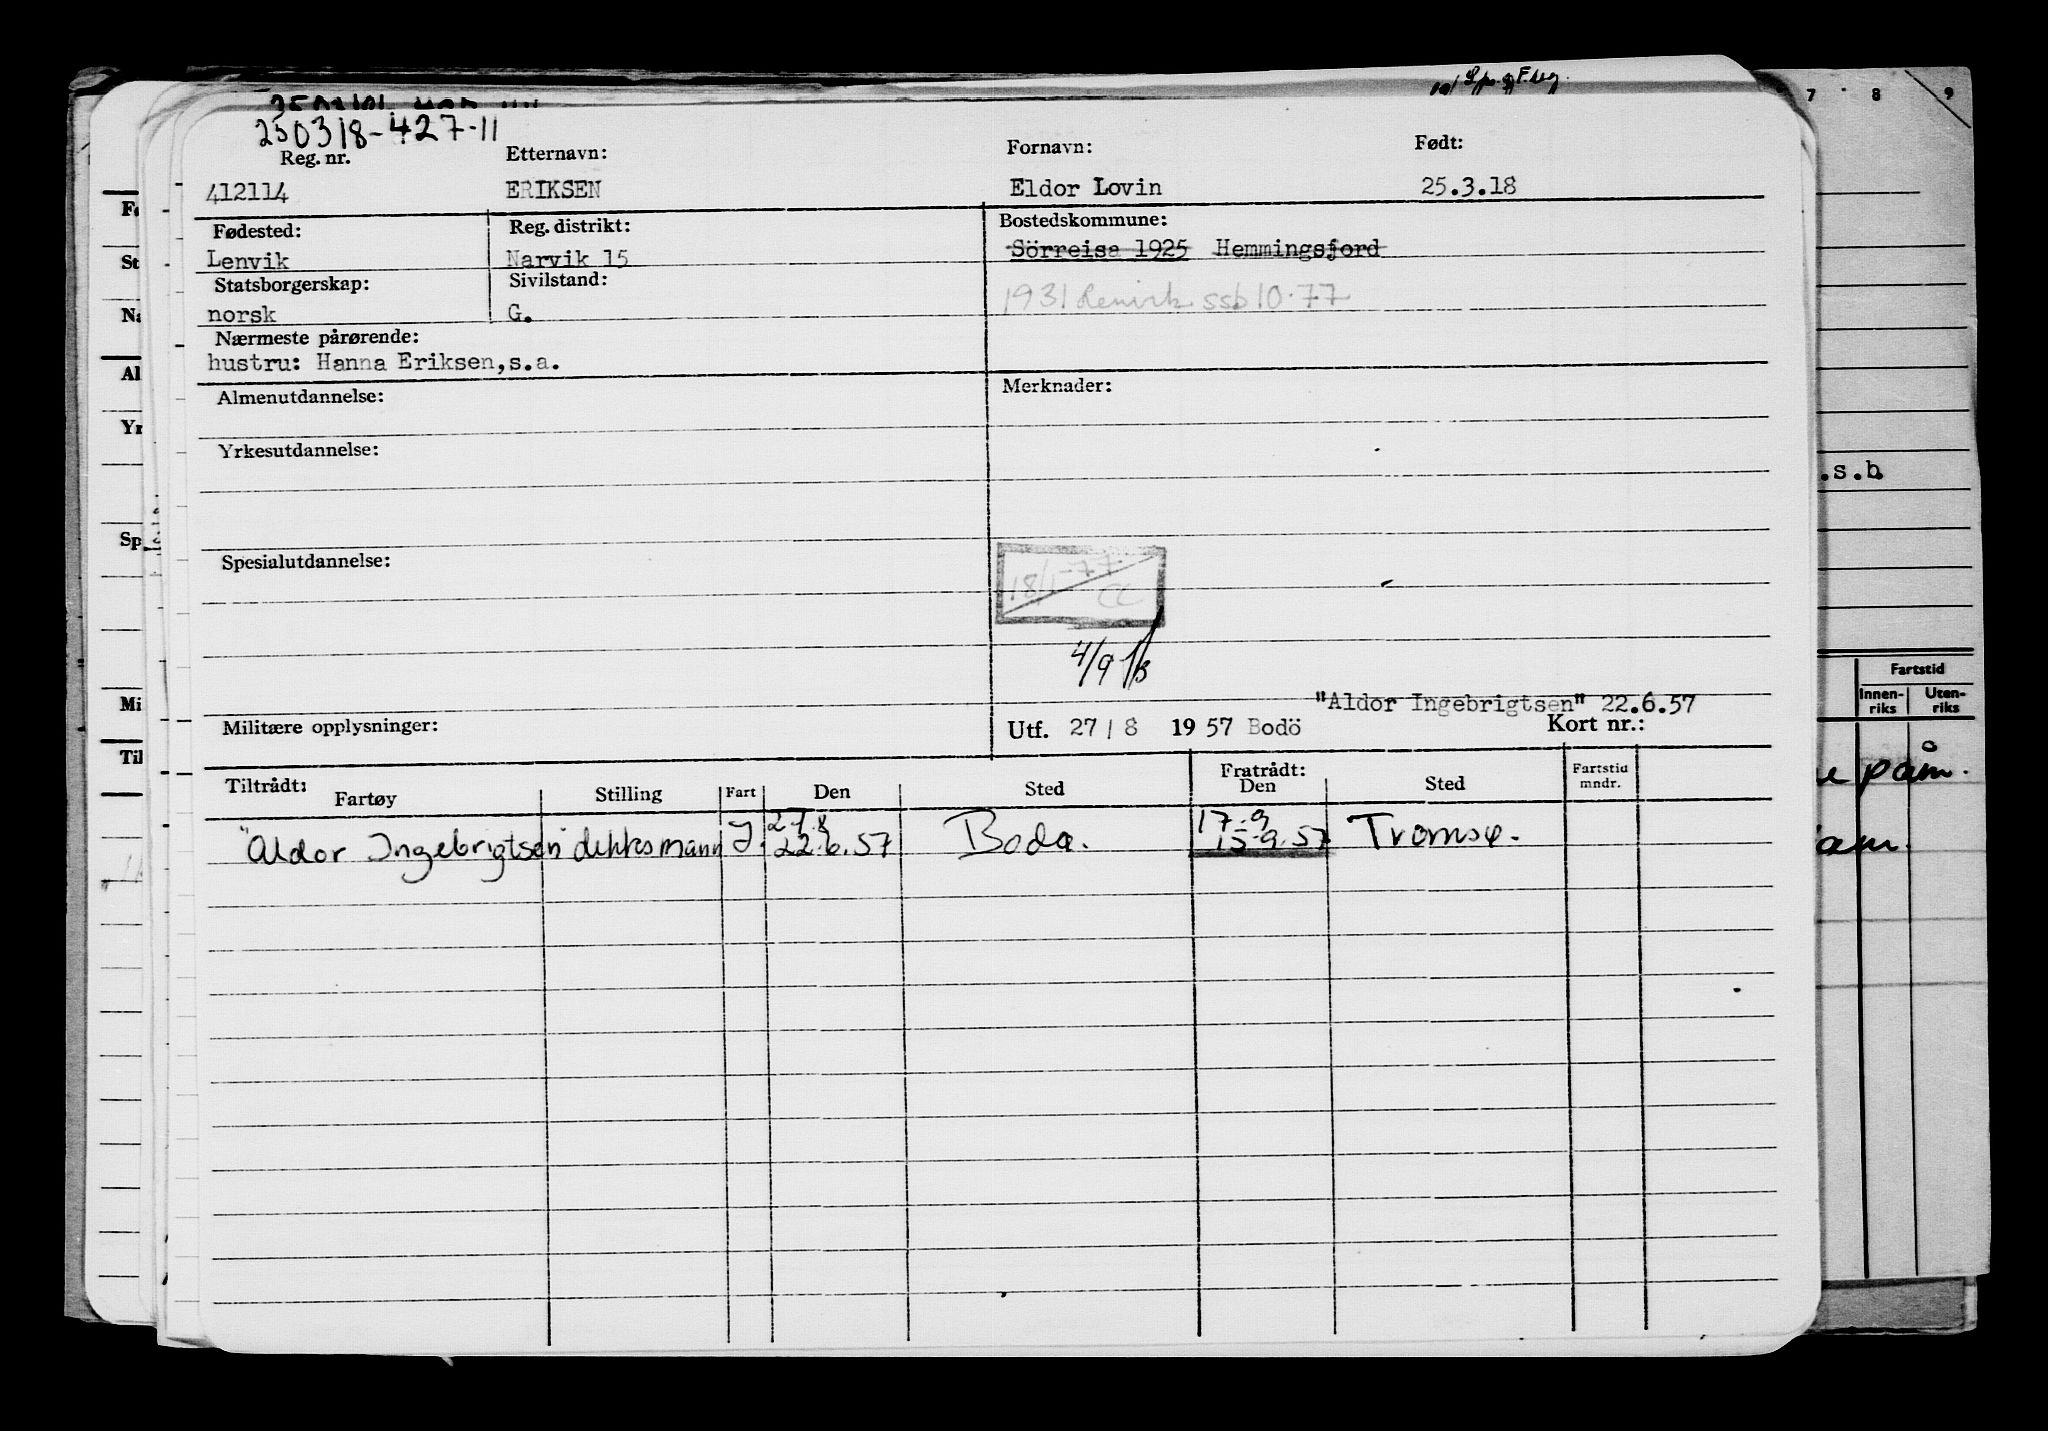 250318-427-11
Reg. nr. Etternavn: Fornavn: Født:
412114 ERIKSEN Eldor Lovin 25.3.18
Fødested: Reg. distrikt: Bostedskommune:
Lenvik Narvik 15 Sörreisa 1925 Hemmingsfjord
Statsborgerskap: Sivilstand:
norsk G. 1931 Lenvik ssb 10.77
Nærmeste pårørende:
hustru: Hanna Eriksen,s.a.
Almenutdannelse: Merknader:
Yrkesutdannelse:
Spesialutdannelse:
18/1-77
4/9
"Aldor Ingebrigtsen" 22.6.57
Militære opplysninger: Utf. 27/8 1957 Bodö Kort nr.:
Tiltrådt: Fratrådt:
Fartøy Stilling Fart Den Sted Den Sted Fartstid mndr.
27.8 17.9
"Aldor Ingebrigtsen" dekksmann J. 22.6.57 Bodø. 15.9.57 Tromsø.
7 8 9
.s.b
Fartstid
Innen-riks Uten-riks
påm.